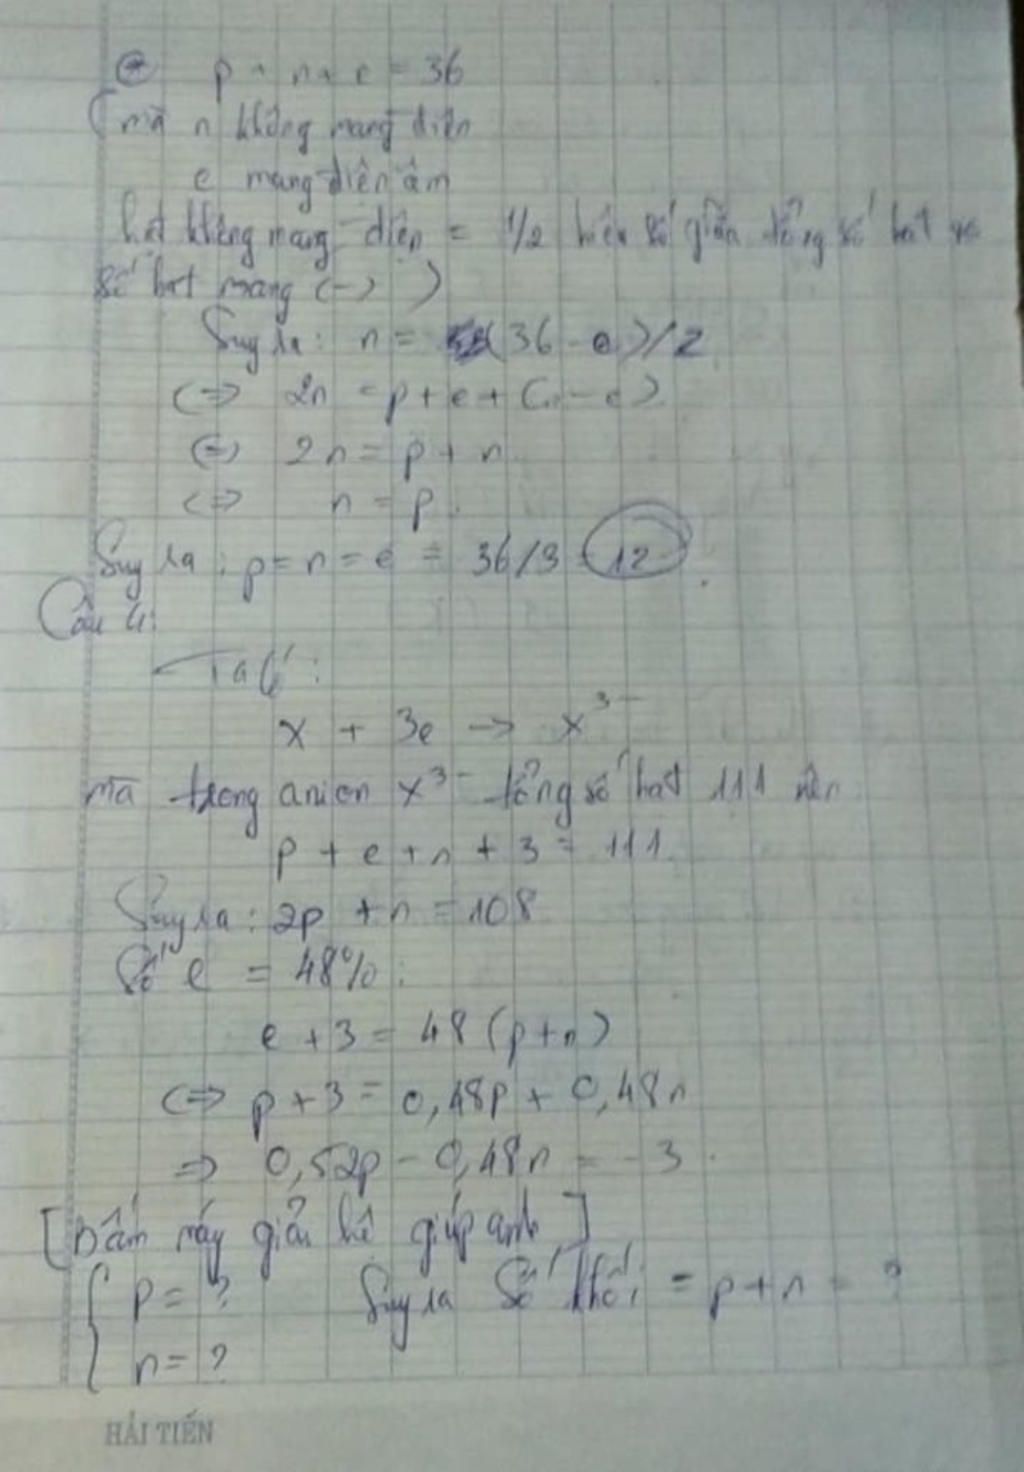 p + n + e = 36
(mà n không mang điện
e mang điện âm
hạt không mang điện = 1/2 hiệu số giữa tổng số hạt và
số hạt mang (-) )
Suy ra: n = (36 - e)/2
<=> 2n = p + e + (n - e)
<=> 2n = p + n
<=> n = p.
Suy ra: p = n = e = 36/3 = 12.
Câu 4:
Ta có:
X + 3e -> X³⁻
mà trong anion X³⁻ tổng số hạt 111 nên
p + e + n + 3 = 111.
Suy ra: 2p + n = 108
Số e = 48%:
e + 3 = 48 (p+n)
<=> p + 3 = 0,48p + 0,48n
=> 0,52p - 0,48n = -3.
[Bấm máy giải hệ giúp anh]
{ p = ? Suy ra Số khối = p + n = ?
n = ?
HẢI TIẾN